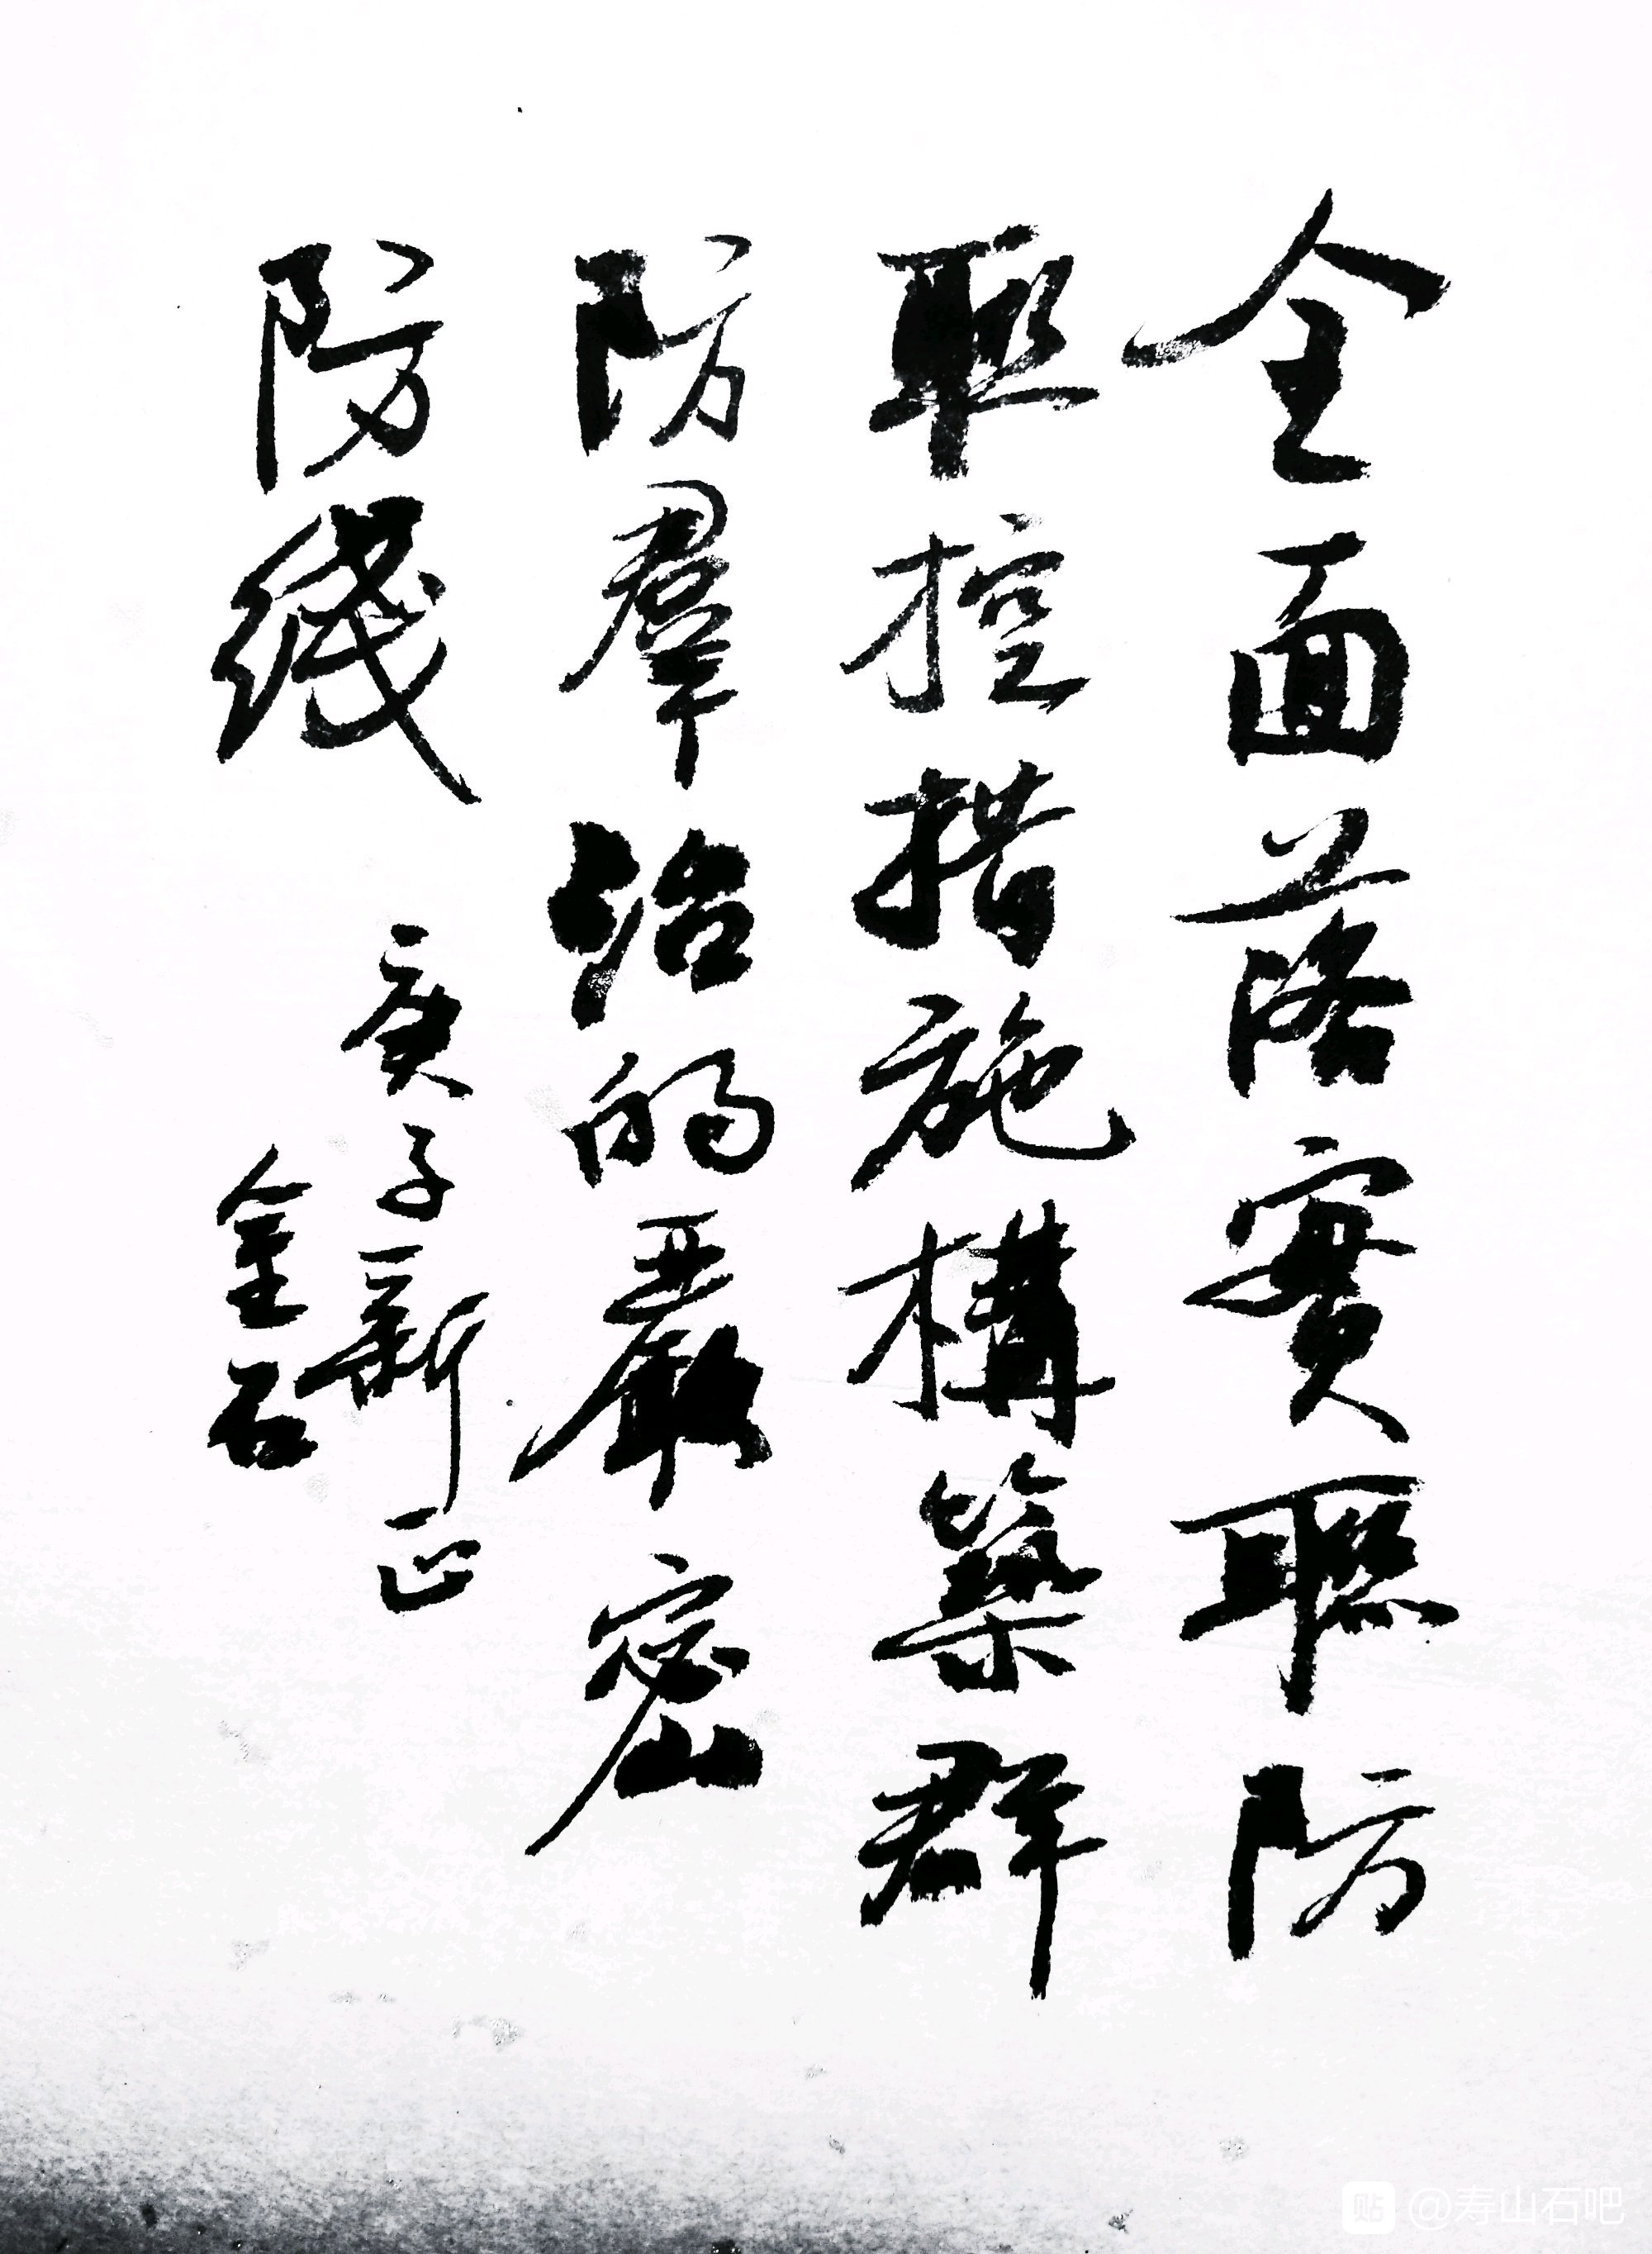 全面落實聯防
聯控措施構築群
防羣治的嚴密
防綫
庚子新正
金石
貼 @寿山石吧